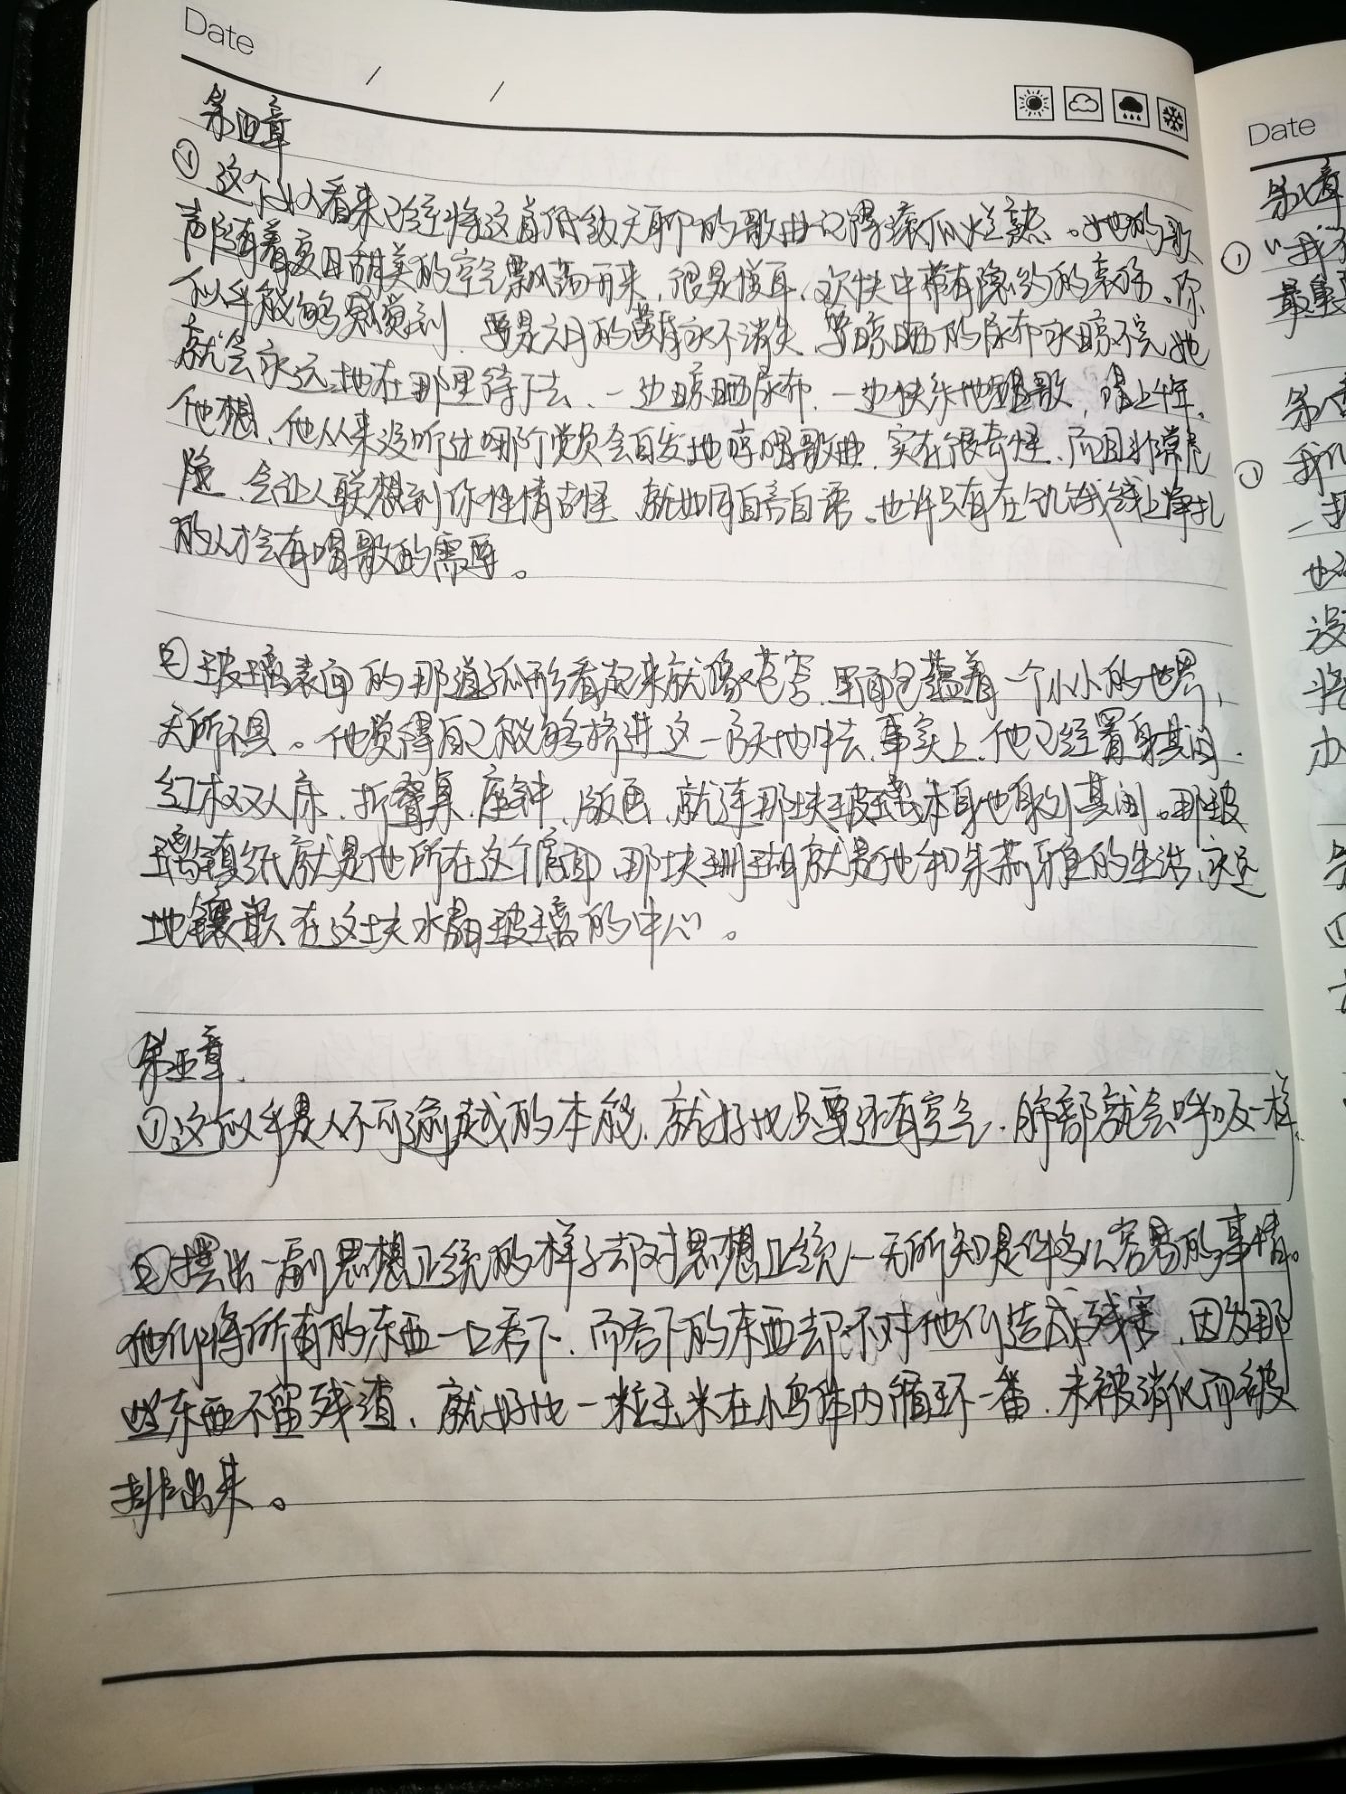 Date
/ /
第四章
① 这个妇人看来已经将这首低级无聊的歌曲记得滚瓜烂熟。她的歌
声随着夏日甜美的空气飘荡而来,很是悦耳,欢快中带有隐约的哀伤。你
似乎能够感觉到,要是六月的黄昏永不消失,要晾晒的尿布永晾不完,她
就会永远地在那里待下去,一边晾晒尿布,一边快乐地唱歌,唱上千年。
他想,他从来没听过哪个党员会自发地哼唱歌曲,实在很奇怪,而且非常危
险,会让人联想到你性情古怪,就如同自言自语。也许只有在饥饿线上挣扎
的人才会有唱歌的需要。
② 玻璃表面的那道弧形看起来就像苍穹,里面包蕴着一个小小的世界,
无所不具。他觉得自己能够挤进这一方天地中去,事实上,他已经置身其间,
红木双人床、折叠桌、座钟、版画,就连那块玻璃本身也身处其间。那玻
璃镇纸就是他所在这个房间,那块珊瑚就是他和朱莉雅的生活,永远
地镶嵌在这块水晶玻璃的中心。
第五章
① 这似乎是人不可逾越的本能,就好比只要还有空气,肺部就会呼吸一样。
② 摆出一副思想正统的样子却对思想正统一无所知是件多么容易的事情。
他们将所有的东西一口吞下,而吞下的东西却不对他们造成残害,因为那
些东西不留残渣,就好比一粒玉米在小鸟体内循环一番,未被消化而被
排出来。
Date
第七章
① "我不
最重要
第八章
① 我们
一
也
没
将
办